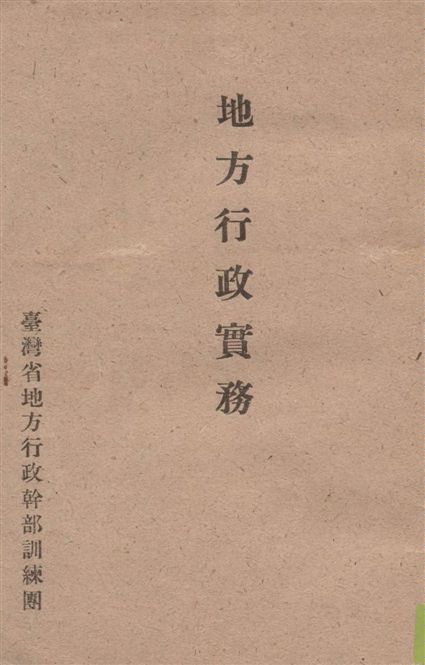 地方行政實務
臺灣省地方行政幹部訓練團